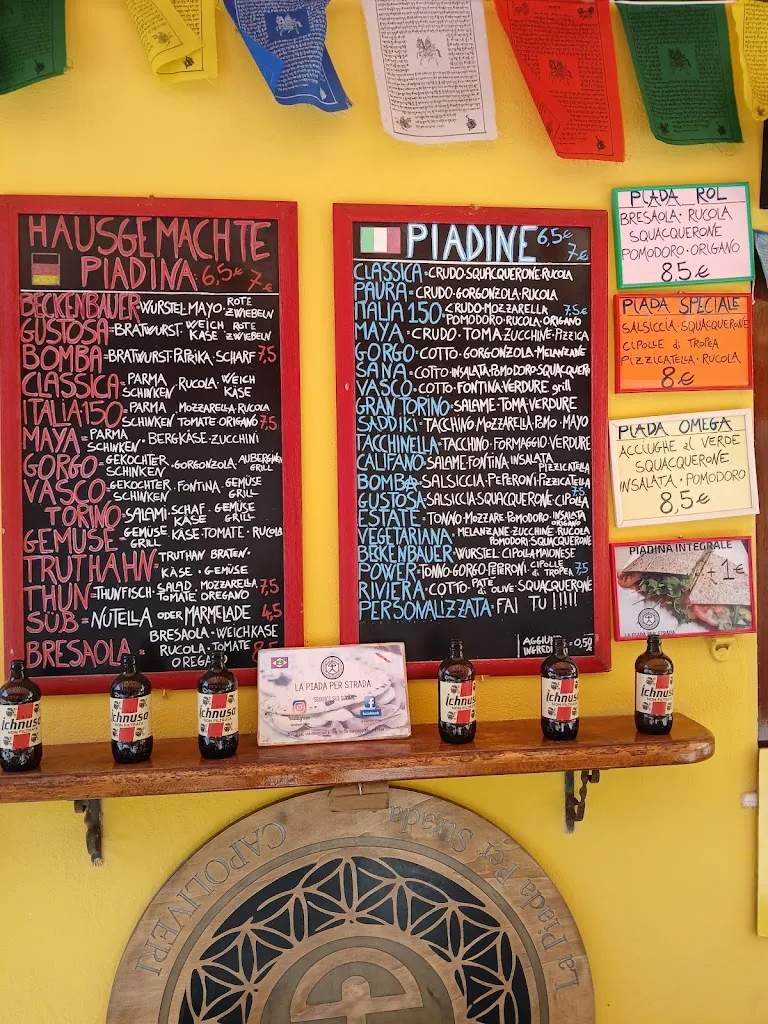 HAUSGEMACHTE
PIADINA 6,5€ 7€
BECKENBAUER=WURSTEL MAYO ROTE ZWIEBELN
GUSTOSA=BRATWURST WEICH KÄSE ROTE ZWIEBELN
BOMBA=BRATWURST·PAPRIKA·SCHARF 7,5
CLASSICA=PARMA SCHINKEN·RUCOLA·WEICH KÄSE
ITALIA150=PARMA SCHINKEN MOZZARELLA RUCOLA TOMATE ORIGANO 7,5
MAYA=PARMA SCHINKEN·BERGKÄSE·ZUCCHINI
GORGO=GEKOCHTER SCHINKEN·GORGONZOLA·AUBERGHEN GRILL
VASCO=GEKOCHTER SCHINKEN·FONTINA·GEMÜSE GRILL
TORINO=SALAMI·SCHAF KÄSE·GEMÜSE GRILL
GEMUSE=GEMÜSE GRILL·KÄSE·TOMATE·RUCOLA
TRUTHAHN=TRUTHAN BRATEN·KÄSE·GEMÜSE
THUN=THUNFISCH·SALAD MOZZARELLA TOMATE OREGANO 7,5
SÜB=NUTELLA ODER MARMELADE 4,5
BRESAOLA=BRESAOLA·WEICHKÄSE RUCOLA·TOMATE OREGANO
PIADINE 6,5€ 7€
CLASSICA=CRUDO·SQUACQUERONE·RUCOLA
PAURA=CRUDO·GORGONZOLA·RUCOLA
ITALIA 150=CRUDO·MOZZARELLA POMODORO·RUCOLA·ORIGANO 7,5€
MAYA=CRUDO·TOMA·ZUCCHINE·PIZZICA
GORGO=COTTO·GORGONZOLA·MELANZANE
SANA=COTTO·INSALATA·POMODORO·SQUACQUER
VASCO=COTTO·FONTINA·VERDURE grill
GRAN TORINO=SALAME·TOMA·VERDURE
SADDIKI=TACCHINO MOZZARELLA·POMO·MAYO
TACCHINELLA=TACCHINO·FORMAGGIO·VERDURE
CALIFANO=SALAME·FONTINA·INSALATA PIZZICATELLA
BOMBA=SALSICCIA·PEPERONI·PIZZICATELLA
GUSTOSA=SALSICCIA·SQUACQUERONE·CIPOLLA 7,5
ESTATE=TONNO·MOZZARE·POMODORO·INSALATA ORIGANO
VEGETARIANA=MELANZANE·ZUCCHINE·RUCOLA POMODORI·SQUACQUERONE
BEKENBAUER=WURSTEL·CIPOLLA·MAIONESE
POWER=TONNO·GORGO·PEPERONI·CIPOLLE di TROPEA 7,5
RIVIERA=COTTO·PATE' di OLIVE·SQUACQUERONE
PERSONALIZZATA=FAI TU!!!!!
AGGIUNTA INGREDI =0,50€
PIADA ROL
BRESAOLA·RUCOLA
SQUACQUERONE
POMODORO·ORIGANO
8,5€
PIADA SPECIALE
SALSICCIA·SQUACQUERONE
CIPOLLE di TROPEA
PIZZICATELLA·RUCOLA
8€
PIADA OMEGA
ACCIUGHE al VERDE
SQUACQUERONE
INSALATA·POMODORO
8,5€
PIADINA INTEGRALE
+1€
LA PIADA PER STRADA
LA PIADA PER STRADA
SEGUICI SUI
Instagram
facebook
ichnusa
NON FILTRATA
ichnusa
NON FILTRATA
ichnusa
NON FILTRATA
ichnusa
NON FILTRATA
ichnusa
NON FILTRATA
ichnusa
NON FILTRATA
CAPOLIVERI
La Piada Per Strada